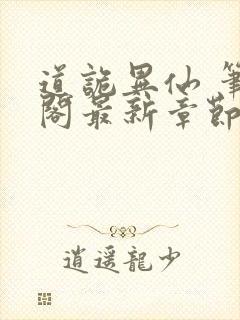 道詭異仙 筆
閣最新章節
逍遥龍少